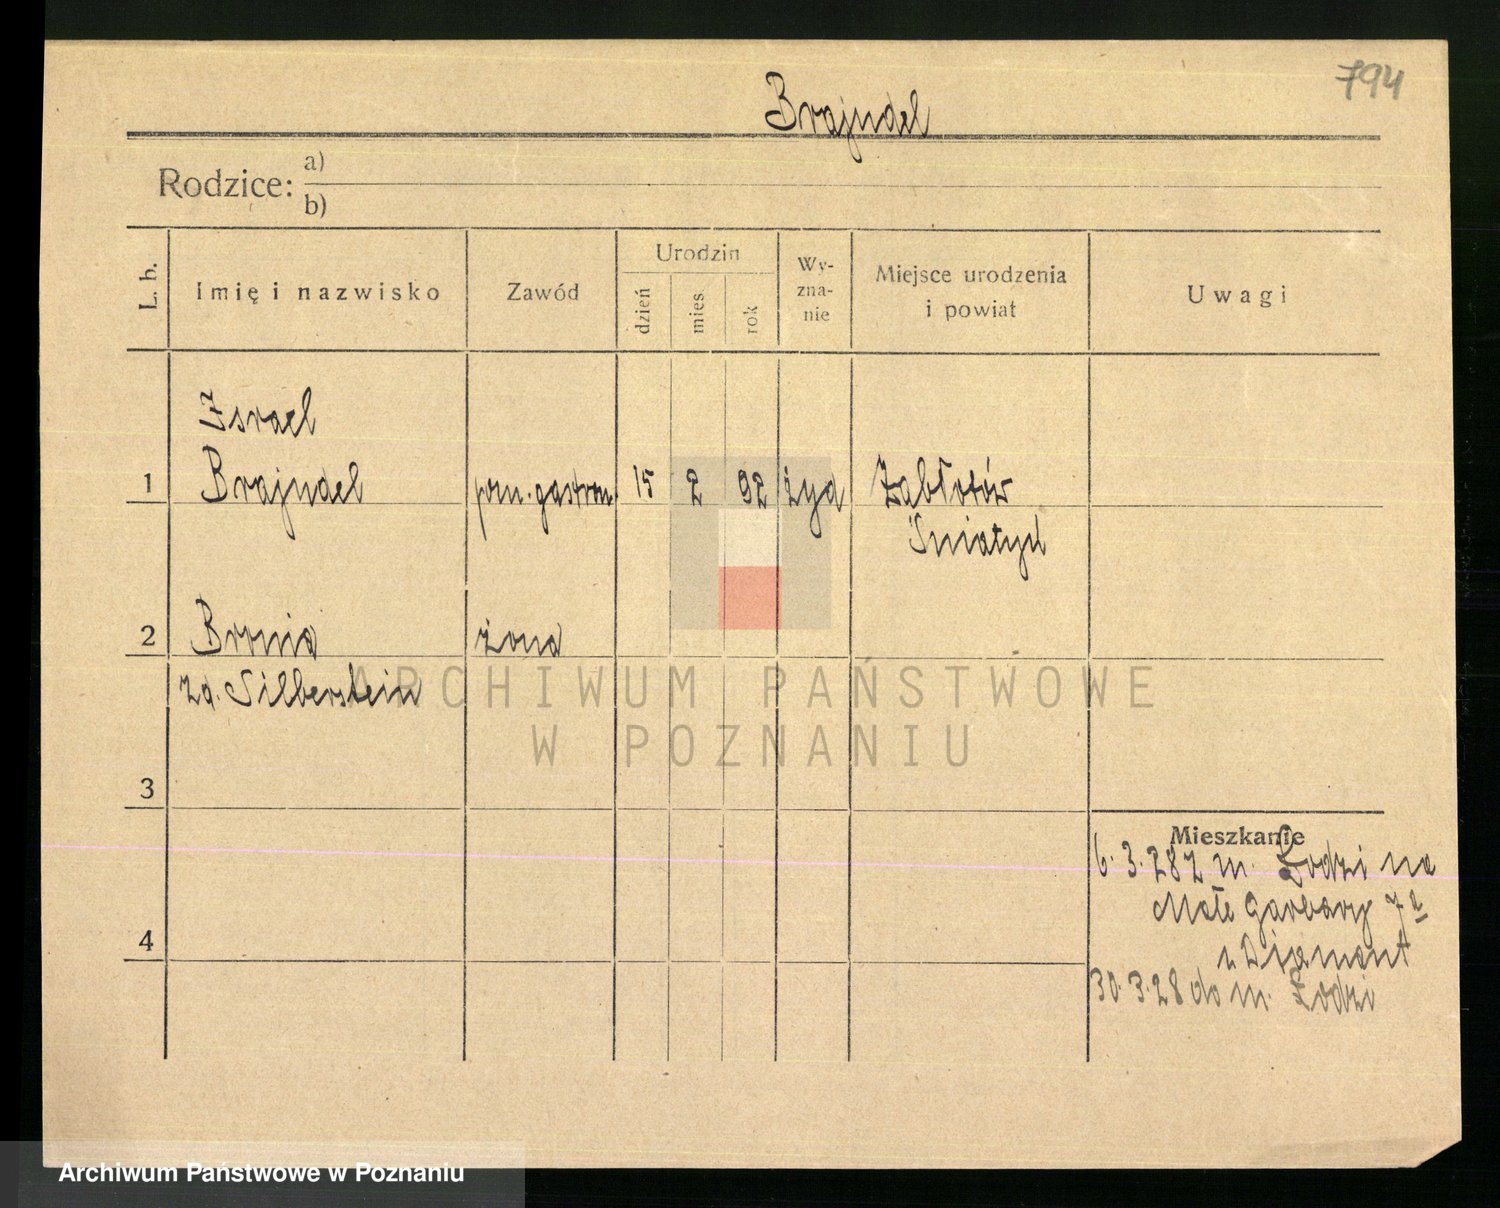 794
Brajndel
Rodzice: a)
b)
L. b. Imię i nazwisko Zawód Urodzin dzień mies rok Wy-zna-nie Miejsce urodzenia i powiat Uwagi
Israel
1 Brajndel pom. gastron. 15 2 92 żyd Zabłotów
Śniatyń
2 Bronia żona
zd. Silberstein
3
Mieszkanie
6.3.28 z m. Łodzi na
Małe Garbary 7a
4
u Diamant
30.3.28 do m. Łodzi
ARCHIWUM PAŃSTWOWE
W POZNANIU
Archiwum Państwowe w Poznaniu